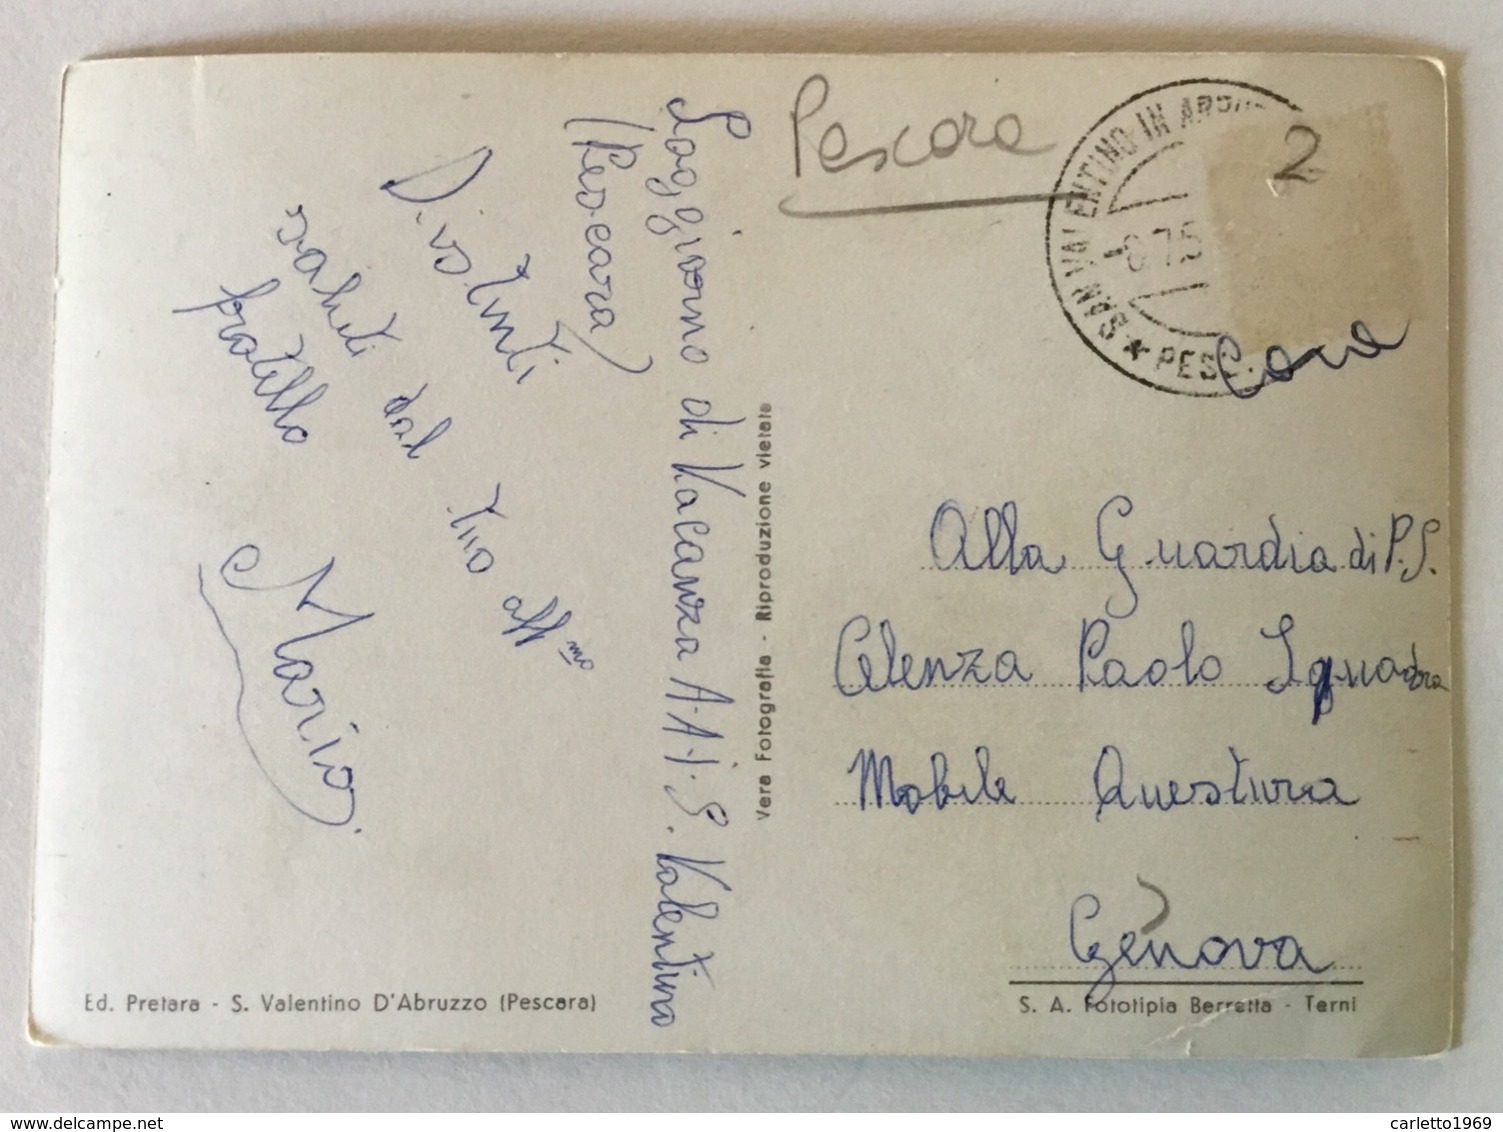 Soggiorno di Vacanza A.A.I. S. Valentino
(Pescara)
Distinti
saluti dal tuo aff.mo
fratello
Mario
Pescara
SAN VALENTINO IN ABRU
PESC.
2
Alla Guardia di P.S.
Celenza Paolo Squadra
Mobile Questura
Genova
Vera Fotografia - Riproduzione vietata
Ed. Pretara - S. Valentino D'Abruzzo (Pescara)
S. A. Fototipia Berretta - Terni
delcampe.net
carletto1969